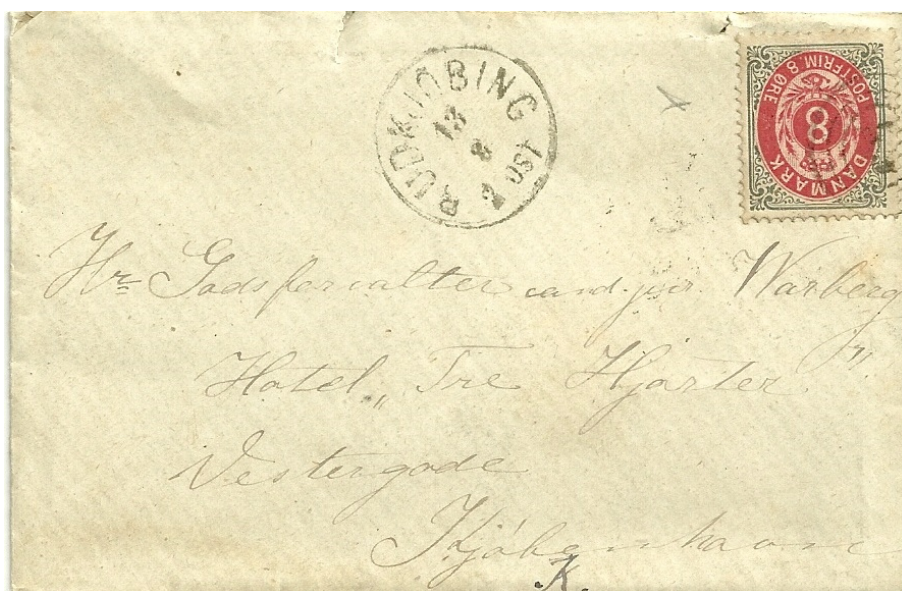 RUDKJØBING
13
8
2 POST
POSTFRIM. 8 ØRE
8
DANMARK
Hr Godsforvalter cand. jur. Warberg
Hotel „Tre Hjorter”
Vestergade
Kjøbenhavn
K.